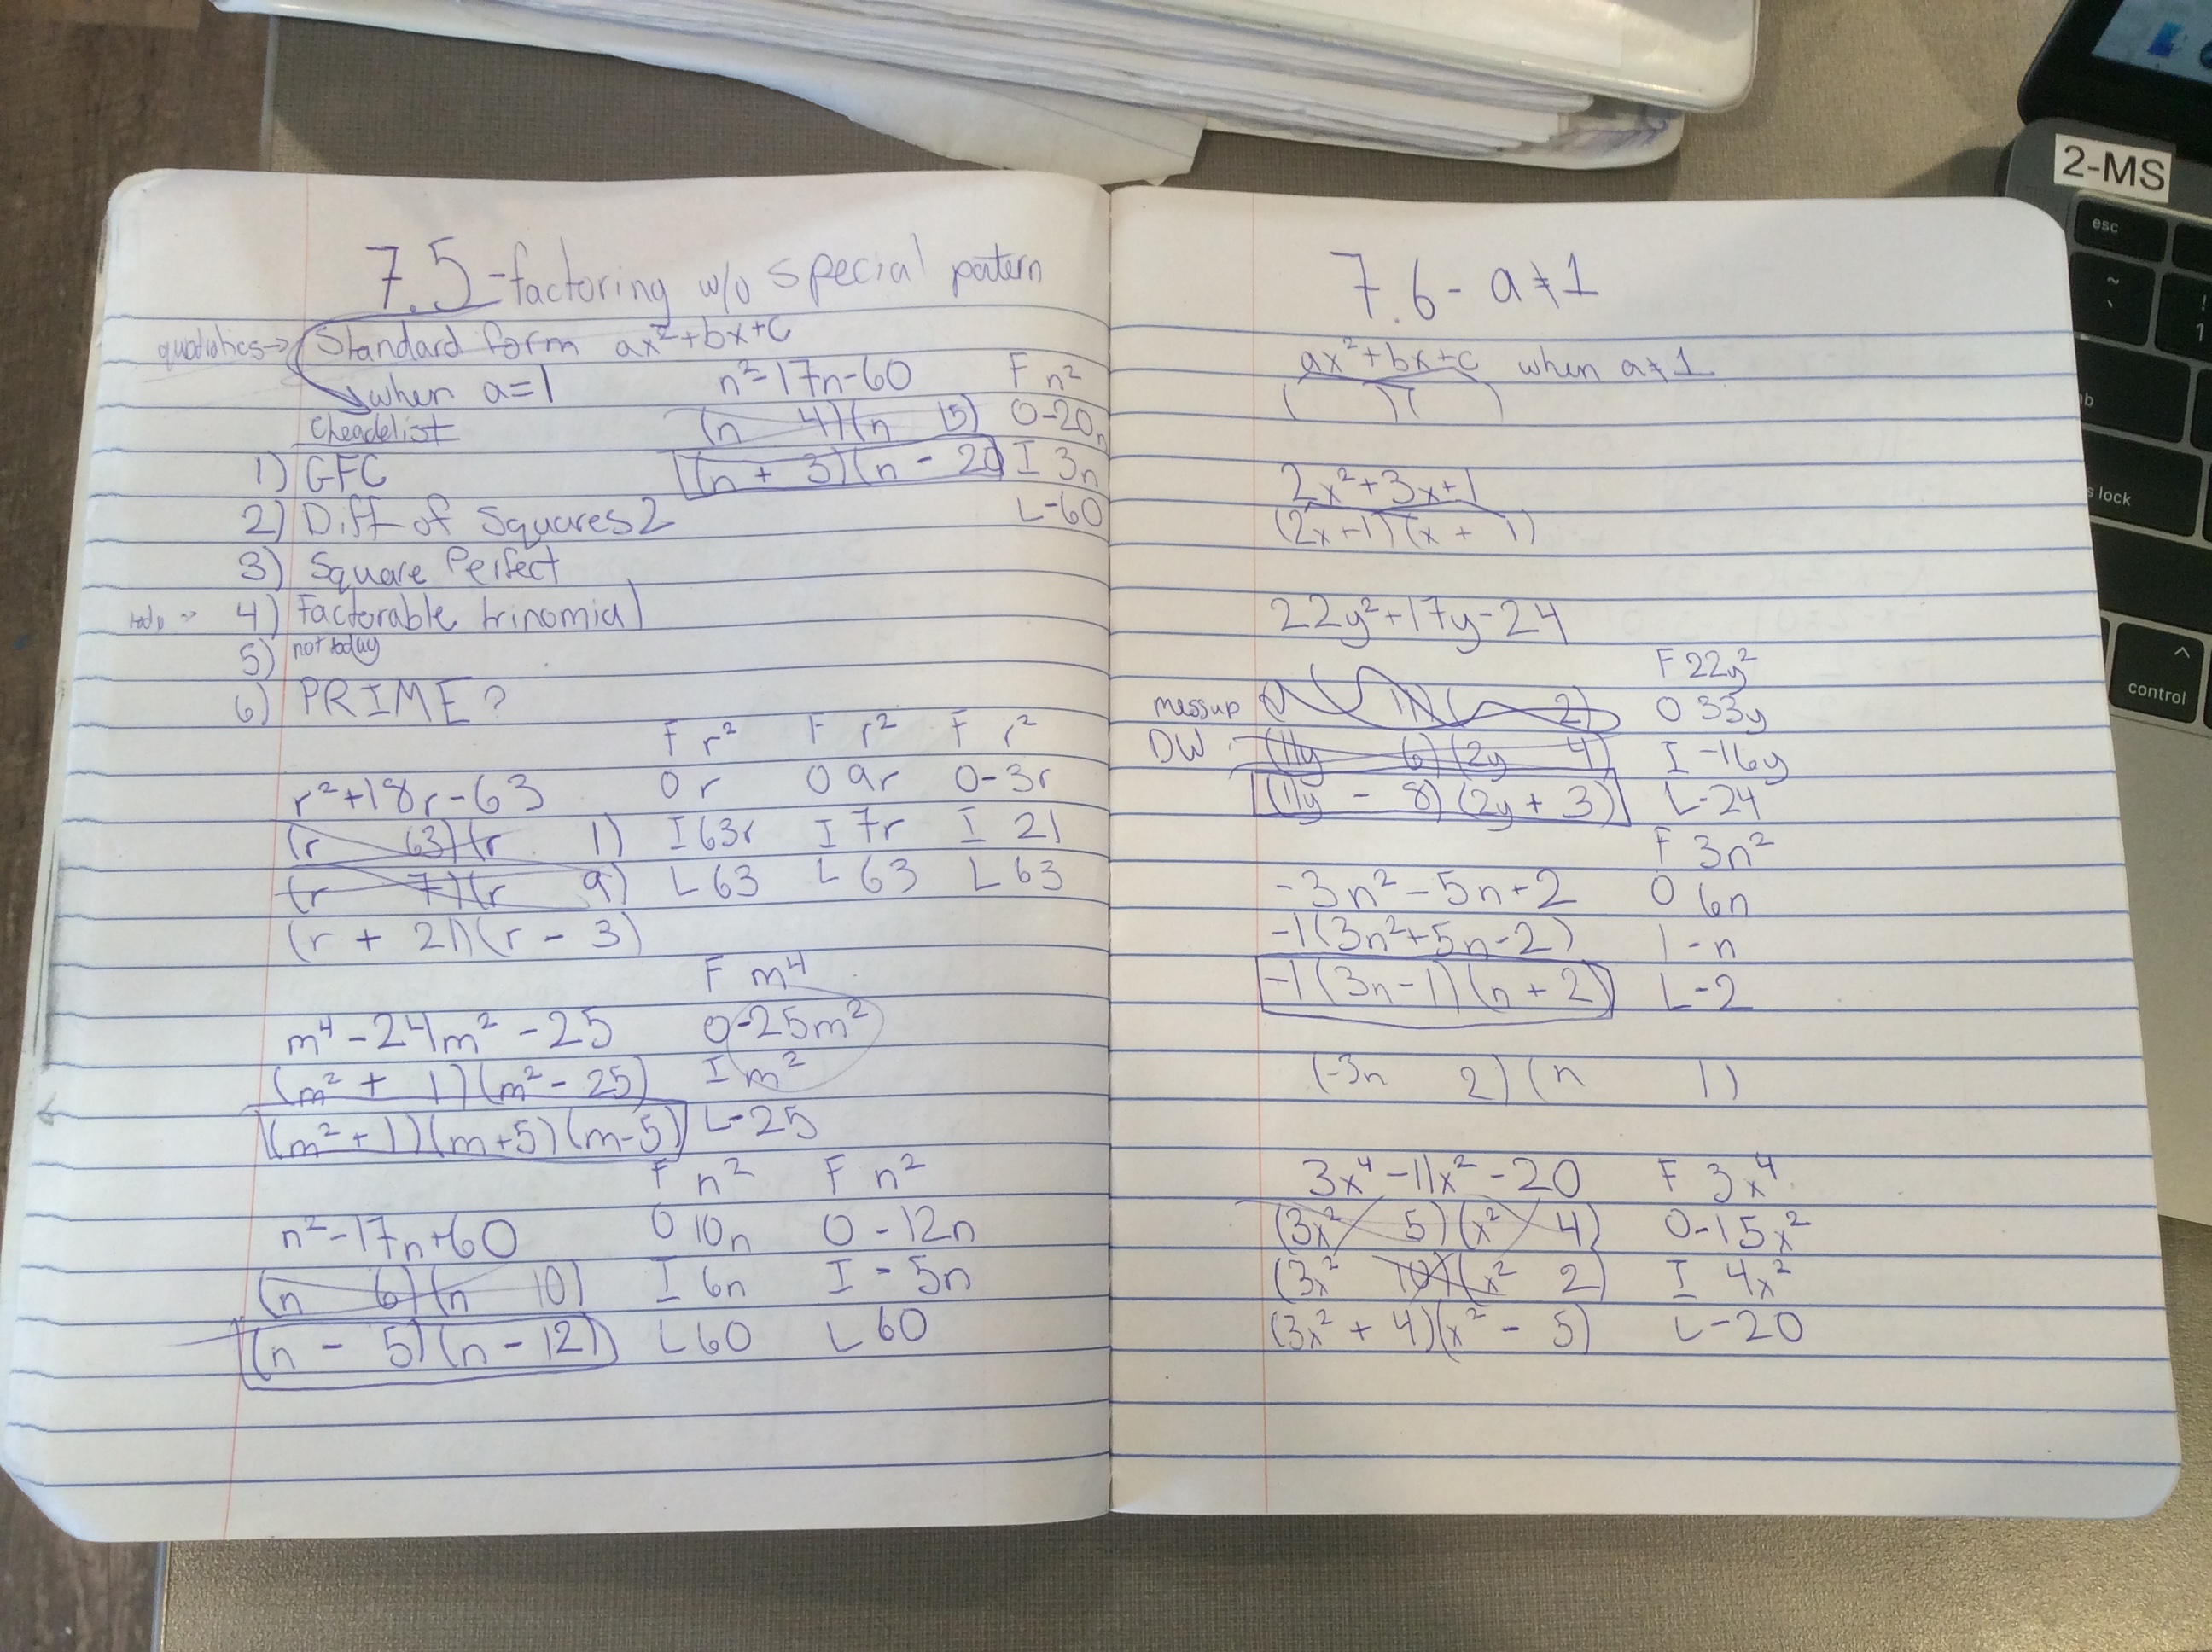 7.5-factoring w/o special patern
quadratics→ Standard form ax²+bx+c
when a=1
n²-17n-60
(n 4)(n 15)
(n + 3)(n - 20)
F n²
O-20n
I 3n
L-60
1) GFC
2) Diff of Squares2
3) Square Perfect
4) Factorable trinomial
5) not today
6) PRIME?
r²+18r-63
(r 63)(r 1)
(r 7)(r 9)
(r + 21)(r - 3)
F r² F r² F r²
O r O 9r O-3r
I 63r I 7r I 21
L 63 L 63 L 63
m⁴-24m²-25
(m² + 1)(m²-25)
(m²+1)(m+5)(m-5)
F m⁴
O-25m²
I m²
L-25
n²-17n+60
(n 6)(n 10)
(n - 5)(n-12)
F n² F n²
O 10n O -12n
I 6n I -5n
L 60 L 60
7.6- a≠1
ax²+bx+c when a≠1
( )( )
2x²+3x+1
(2x+1)(x + 1)
22y²+17y-24
messup 11)( 2)
DW (11y 6)(2y 4)
(11y - 8)(2y + 3)
F 22y²
O 33y
I -16y
L-24
-3n²-5n+2
-1(3n²+5n-2)
-1(3n-1)(n+2)
F 3n²
O 6n
I -n
L-2
(-3n 2)(n 1)
3x⁴-11x²-20
(3x² 5)(x² 4)
(3x² 10)(x² 2)
(3x² + 4)(x² - 5)
F 3x⁴
O-15x²
I 4x²
L-20
2-MS
esc
~
`
!
1
s lock
^
control